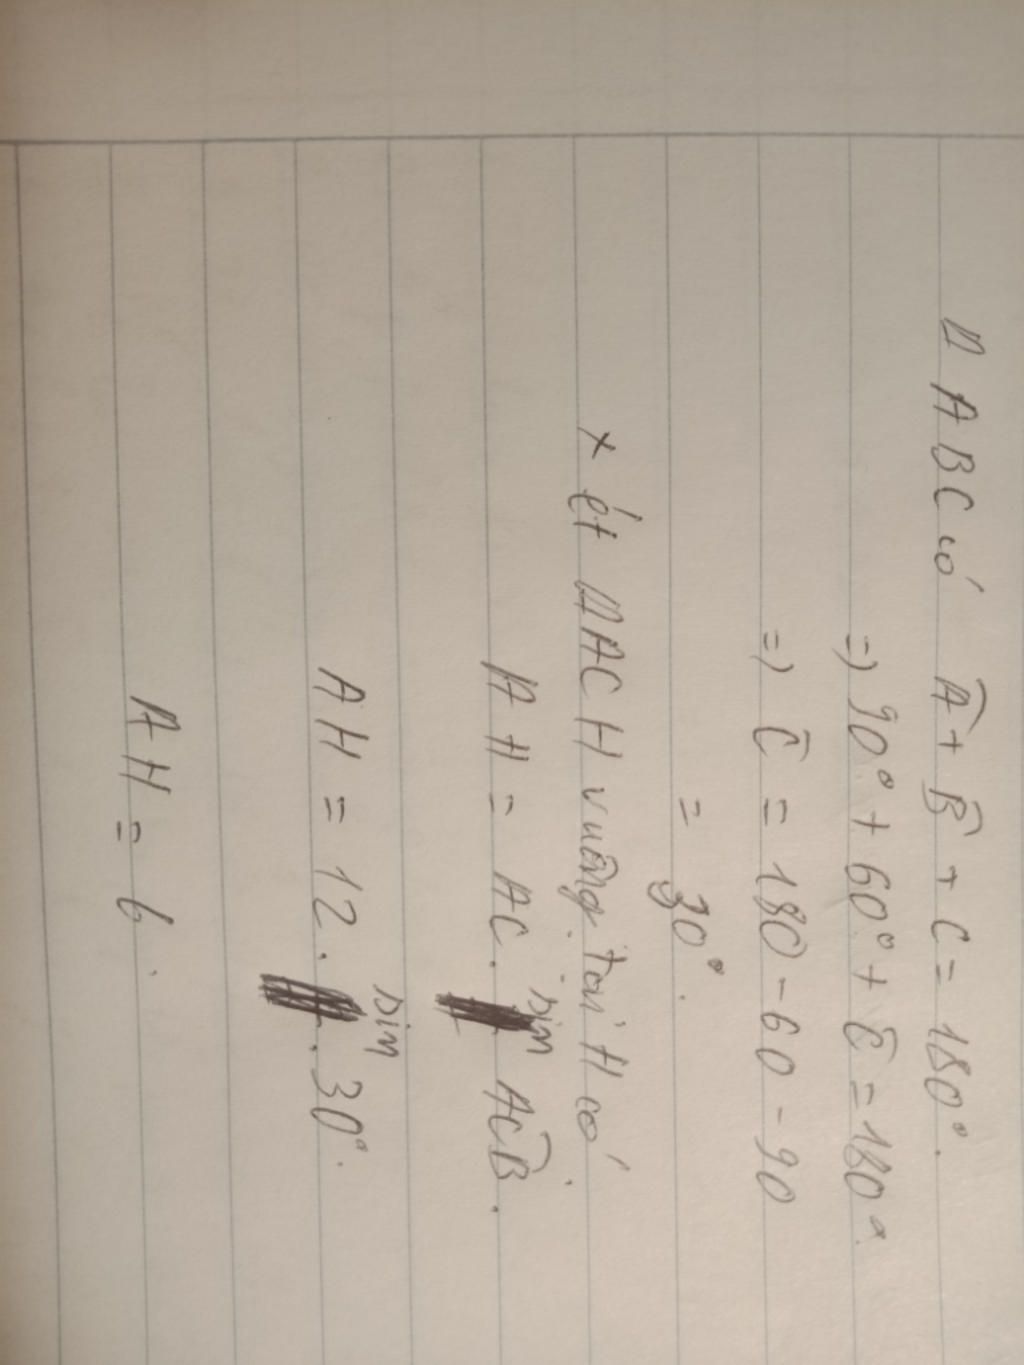 Δ ABC có Â + B̂ + C = 180°.
=> 90° + 60° + Ĉ = 180°.
=> Ĉ = 180 - 60 - 90
= 30°.
xét ΔACH vuông tại H có
AH = AC. sin ACB.
AH = 12. sin 30°.
AH = 6.